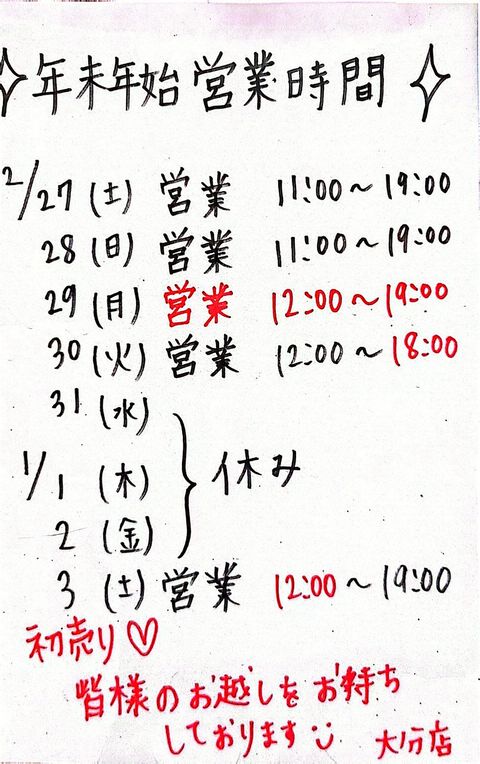 年末年始営業時間
2/27(土) 営業 11:00～19:00
28(日) 営業 11:00～19:00
29(月) 営業 12:00～19:00
30(火) 営業 12:00～18:00
31(水)
1/1(木) 休み
2(金)
3(土) 営業 12:00～19:00
初売り♡
皆様のお越しをお待ち
しております
大分店